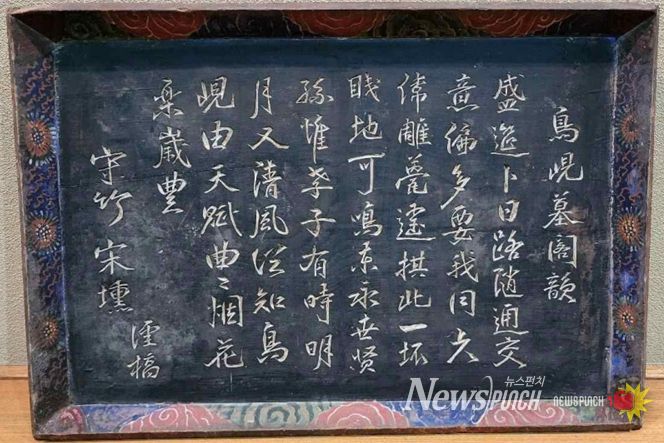 鳥峴墓閣韻
盛筵卜日路隨通交
意偏多要我同
雕甍拱此一坏
賤地可鳴東永世賢
孫惟孝子有時明
月又清風從知鳥
峴由天賦曲〻烟花
樂歲豊
守竹宋壎
謹稿
뉴스펀치
NEWSPUNCH
NEWSPUNCH